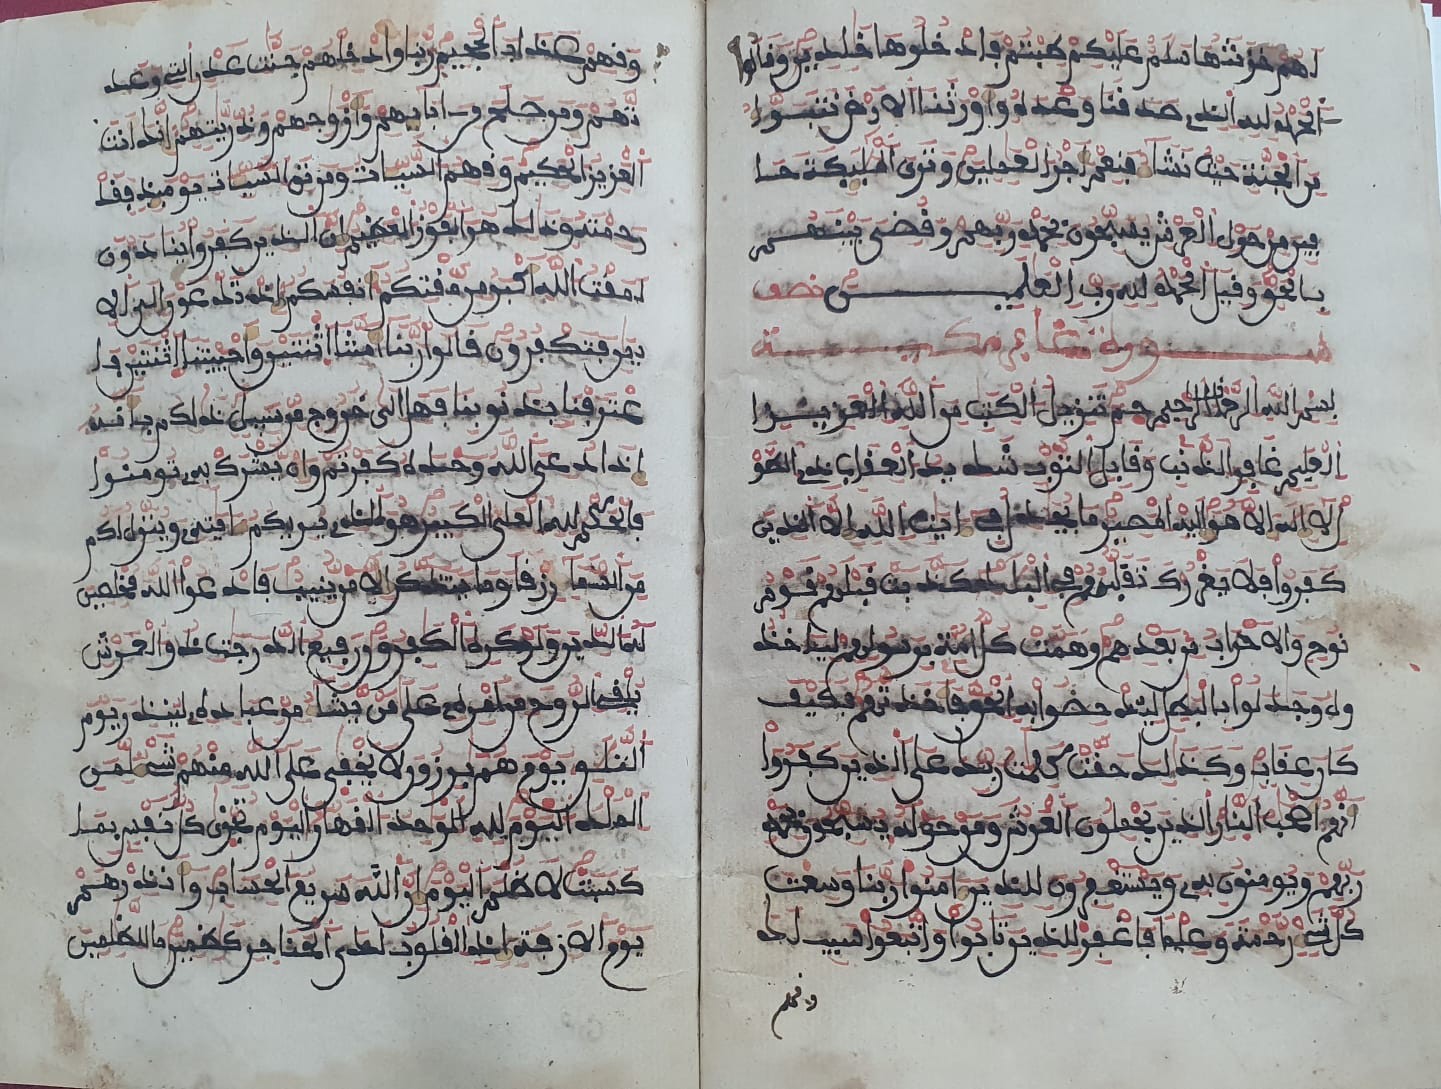 لهم خزنتها سلم عليكم طبتم فادخلوها خلدين وقالوا
الحمد لله الذي صدقنا وعده واورثنا الارض نتبوا
من الجنة حيث نشا فنعم اجر العملين وترى المليكة حا
فين من حول العرش يسبحون بحمد ربهم وقضي بينهم
بالحق وقيل الحمد لله رب العلمين نصف
سورة غافر مكية
بسم الله الرحمن الرحيم حم تنزيل الكتب من الله العزيز ا
لعليم غافر الذنب وقابل التوب شديد العقاب ذي الطو
ل لا اله الا هو اليه المصير ما يجدل في ايت الله الا الذين
كفروا فلا يغررك تقلبهم في البلد كذبت قبلهم قوم
نوح والاحزاب من بعدهم وهمت كل امة برسولهم لياخذ
وه وجدلوا بالبطل ليدحضوا به الحق فاخذتهم فكيف
كان عقاب وكذلك حقت كلمت ربك على الذين كفروا
انهم اصحب النار الذين يحملون العرش ومن حوله يسبحون بحمد
ربهم ويومنون به ويستغفرون للذين امنوا ربنا وسعت
كل شي رحمة وعلما فاغفر للذين تابوا واتبعوا سبيلك
وقهم
وقهم عذاب الجحيم ربنا وادخلهم جنت عدن التي وعد
تهم ومن صلح من ابايهم وازوجهم وذريتهم انك انت
العزيز الحكيم وقهم السيات ومن تق السيات يوميذ فقد
رحمته وذلك هو الفوز العظيم ان الذين كفروا ينادون
لمقت الله اكبر من مقتكم انفسكم اذ تدعون الى الا
يمن فتكفرون قالوا ربنا امتنا اثنتين واحييتنا اثنتين فا
عترفنا بذنوبنا فهل الى خروج من سبيل ذلكم بانه
اذا دعي الله وحده كفرتم وان يشرك به تومنوا
فالحكم لله العلي الكبير هو الذي يريكم ايته وينزل لكم
من السما رزقا وما يتذكر الا من ينيب فادعوا الله مخلصين
له الدين ولو كره الكفرون رفيع الدرجت ذو العرش
يلقي الروح من امره على من يشا من عباده لينذر يوم
التلق يوم هم برزون لا يخفى على الله منهم شي لمن
الملك اليوم لله الوحد القهار اليوم تجزى كل نفس بما
كسبت لا ظلم اليوم ان الله سريع الحساب وانذرهم
يوم الازفة اذ القلوب لدى الحناجر كظمين ما للظلمين